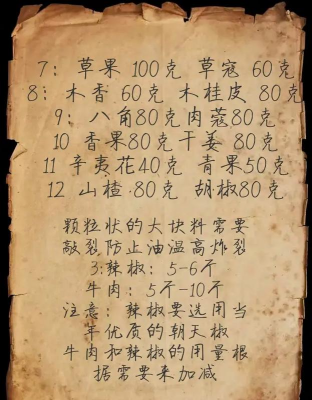 7: 草果 100克 草寇 60克
8: 木香 60克 木桂皮 80克
9: 八角80克肉蔻80克
10 香果80克干姜 80克
11 辛夷花40克 青果50克
12 山楂 80克 胡椒80克
颗粒状的大块料需要
敲裂防止油温高炸裂
3:辣椒: 5-6斤
牛肉: 5斤-10斤
注意: 辣椒要选用当
年优质的朝天椒
牛肉和辣椒的用量根
据需要来加减